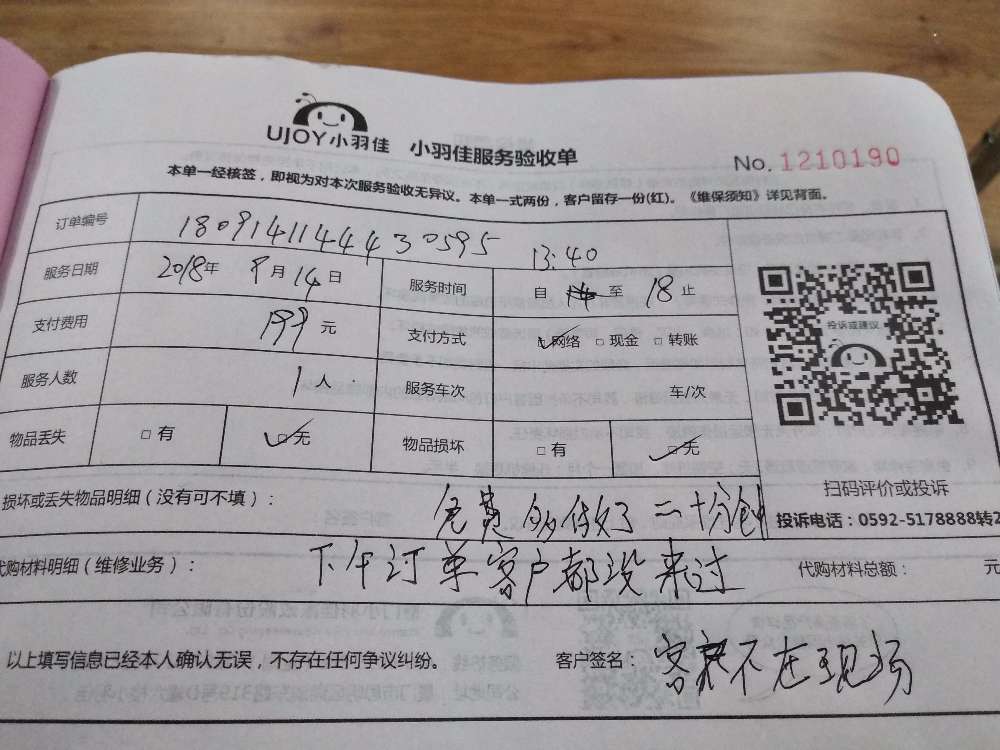 UJOY小羽佳 小羽佳服务验收单 No. 1210190
本单一经核签，即视为对本次服务验收无异议。本单一式两份，客户留存一份(红)。《维保须知》详见背面。
订单编号 18091411444430595
服务日期 2018年 9月14日 服务时间 13:40 自 至 18 止
支付费用 199 元 支付方式 网络 现金 转账
服务人数 1 人 服务车次 车/次
物品丢失 有 无 物品损坏 有 无
投诉或建议
扫码评价或投诉
投诉电话：0592-5178888转2
损坏或丢失物品明细（没有可不填）： 免费多做了二十分钟
代购材料明细（维修业务）： 下午订单客户都没来过 代购材料总额： 元
以上填写信息已经本人确认无误，不存在任何争议纠纷。 客户签名： 客户不在现场